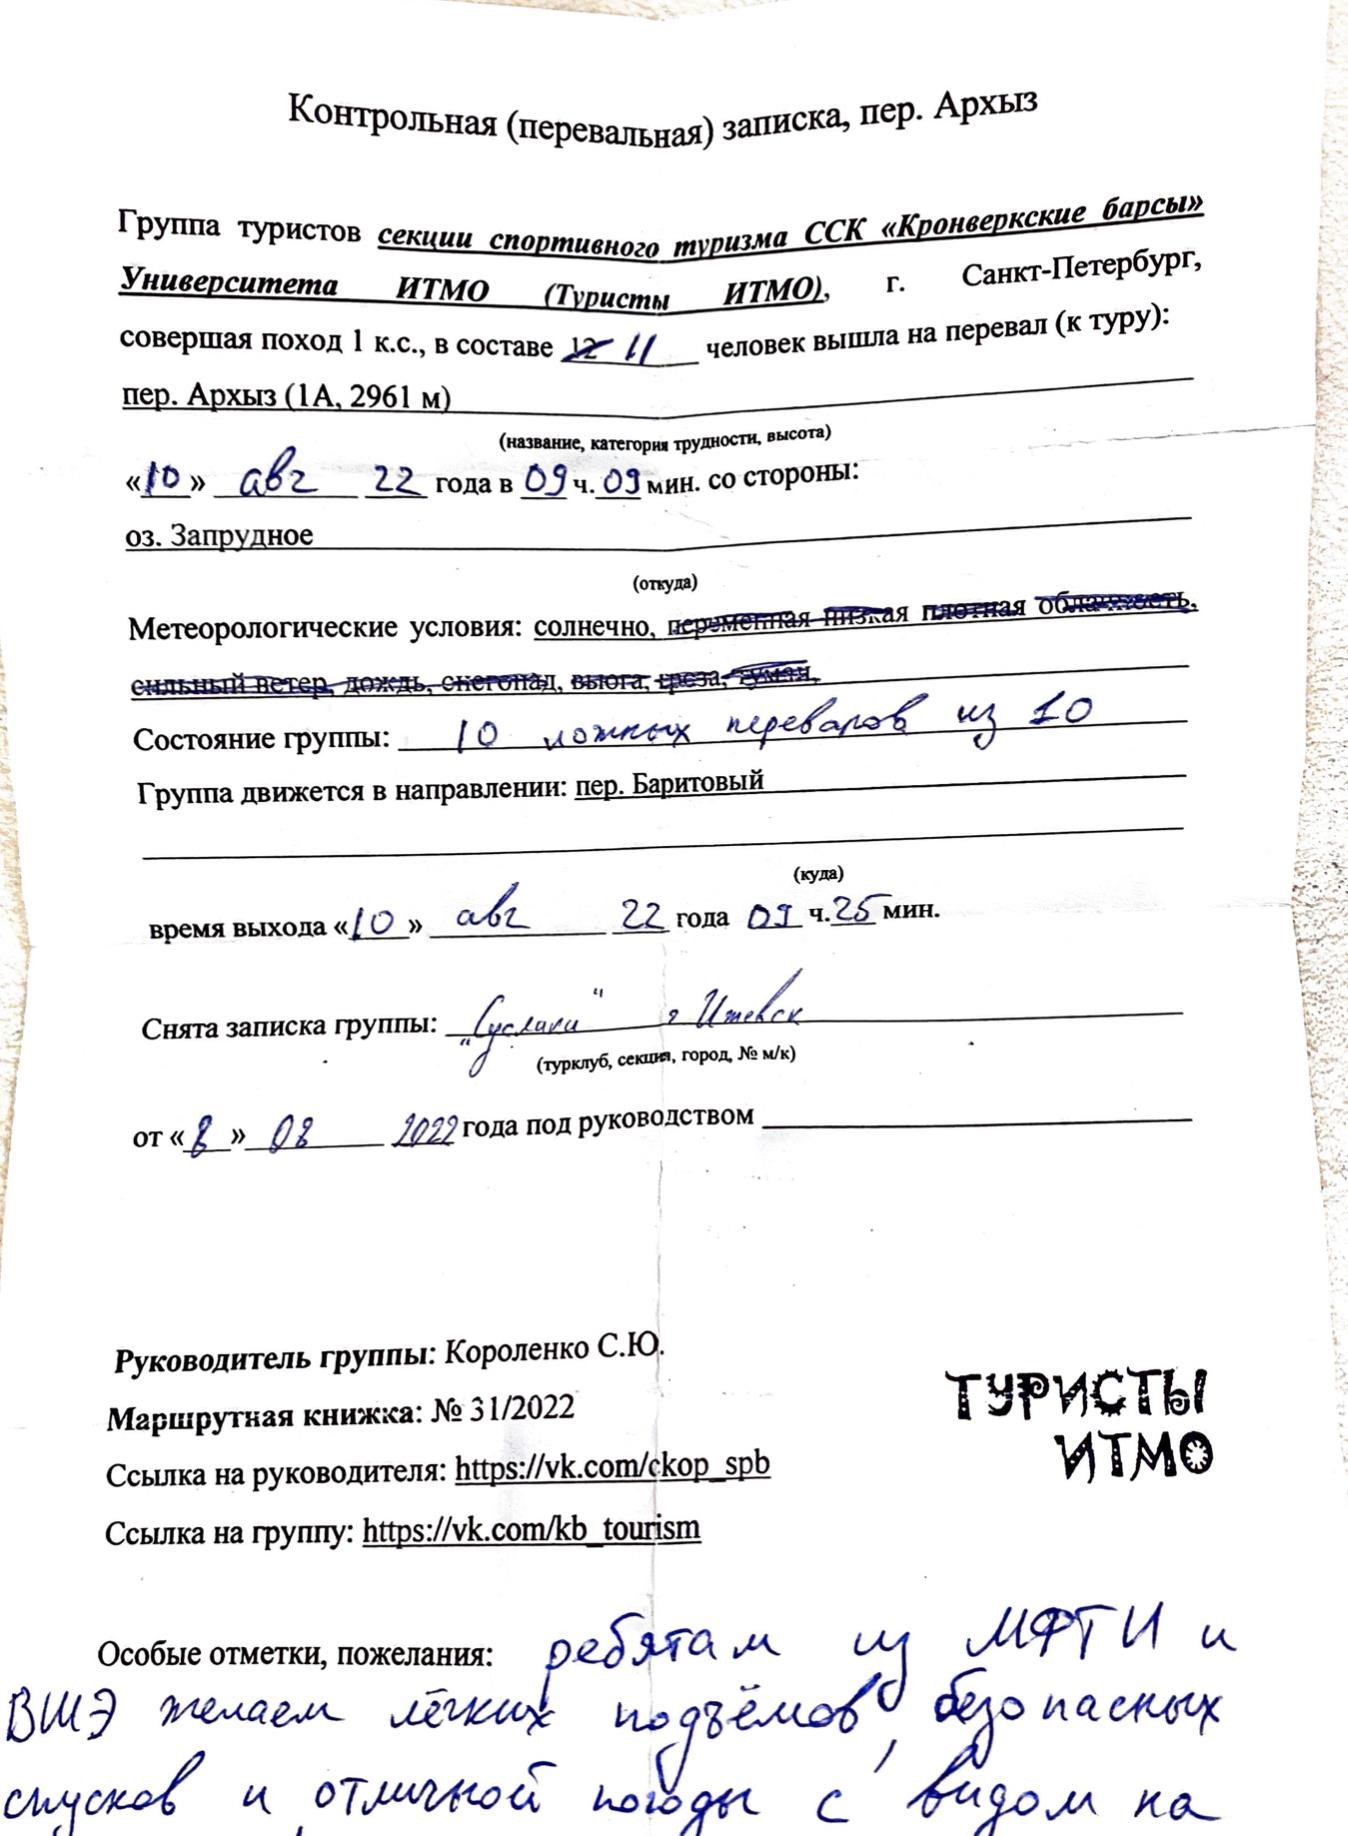 Контрольная (перевальная) записка, пер. Архыз
Группа туристов секции спортивного туризма ССК «Кронверкские барсы»
Университета ИТМО (Туристы ИТМО), г. Санкт-Петербург,
совершая поход 1 к.с., в составе 12 11 человек вышла на перевал (к туру):
пер. Архыз (1А, 2961 м)
(название, категория трудности, высота)
«10» авг 22 года в 09 ч. 09 мин. со стороны:
оз. Запрудное
(откуда)
Метеорологические условия: солнечно, переменная низкая плотная облачность,
сильный ветер, дождь, снегопад, вьюга, гроза, туман,
Состояние группы: 10 ложных перевалов из 10
Группа движется в направлении: пер. Баритовый
(куда)
время выхода «10» авг 22 года 09 ч. 25 мин.
Снята записка группы: "Суслики" г Ижевск
(турклуб, секция, город, № м/к)
от «8» 08 2022 года под руководством
Руководитель группы: Короленко С.Ю.
Маршрутная книжка: № 31/2022
ТУРИСТЫ
Ссылка на руководителя: https://vk.com/ckop_spb
ИТМО
Ссылка на группу: https://vk.com/kb_tourism
Особые отметки, пожелания: ребятам из МФТИ и
ВШЭ желаем лёгких подъёмов, безопасных
спусков и отличной погоды с видом на